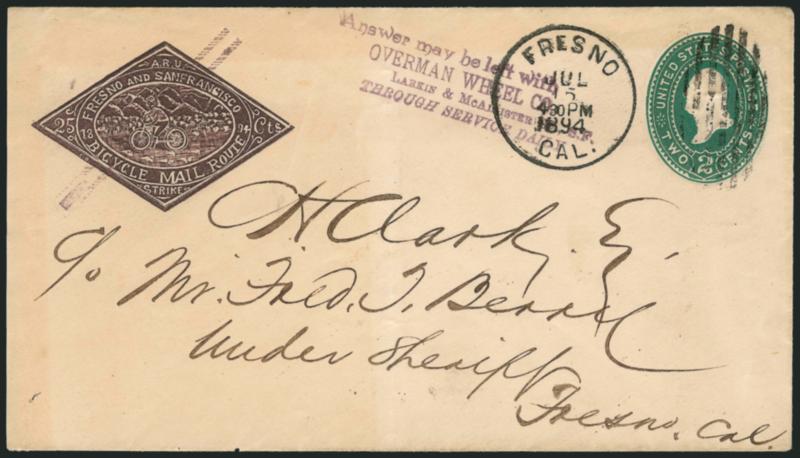 A.R.U.
FRESNO AND SANFRANCISCO
25 Cts
18 94
BICYCLE MAIL ROUTE
STRIKE
Answer may be left with
OVERMAN WHEEL CO.
LARKIN & McALLISTER S.F.
THROUGH SERVICE DAILY
FRESNO
JUL
5
430PM
1894
CAL.
UNITED STATES POSTAGE
TWO 2 CENTS
H Clark, E
c/o Mr. Fred. J. Berry
Under Sheriff
Fresno, Cal.